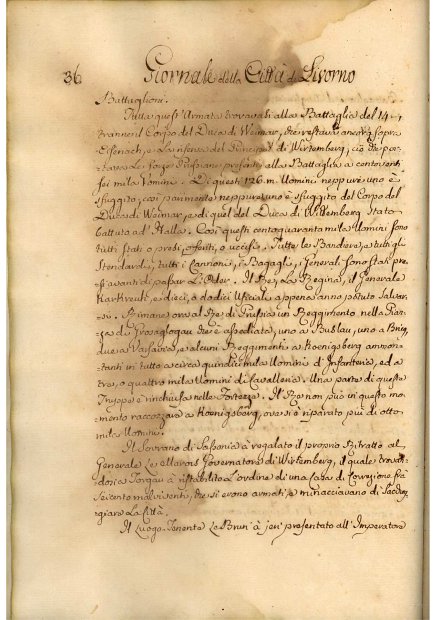 36 Giornale della Città di Livorno
Battaglioni.
Tutta quest'Armata trovavasi alla Battaglia del 14.
tranne il Corpo del Duca di Weimar, che restava ancora sopra
Eisenach, e la riserva del Principe di Wirtemberg, ciò che por-
tava le forze Prussiane presenti alla Battaglia a centoventi
sei mila Uomini. Di questi 126.m. Uomini neppure uno è
sfuggito, così parimente neppure uno è sfuggito del Corpo del
Duca di Weimar, e di quel del Duca di Wirtemberg Stato
battuto ad Halla. Così questi centoquaranta mila Uomini sono
tutti stati o presi, o feriti, o uccisi. Tutte le Bandiere, e tutti gli
Stendardi, tutti i Cannoni, i Bagagli, i Generali sono stati pre-
si avanti di passar L'Oder. Il Re, La Regina, il Generale
Karkreult e dieci, o dodici Ufiziali appena anno potuto salvar-
si. Rimane ora al Re di Prussia un Reggimento nella Piaz-
za de Grosglogau che è assediata, uno a Buslau, uno a Brieg,
due a Varsavia, e alcuni Reggimenti a Koenigsberg ammon-
tanti in tutto a circa quindici mila Uomini di Infanteria, ed a
tre, o quattro mila Uomini di Cavalleria. Una parte di queste
Truppe è rinchiusa nelle Fortezze. Il Re non può in questo mo-
mento raccozzare a Koenigsberg, ove si è riparato più di otto
mila Uomini.
Il Sovrano di Sassonia à regalato il proprio Ritratto al
Generale Le Marois Governatore di Wirtemberg, il quale trovan-
dosi a Torgau à ristabilito L'ordine di una Casa di Correzione frà
Seicento malviventi, che si erono armati, e minacciavano di sacche-
giare La Città.
Il Luogo-Tenente Le Brun à jeri presentato all'Imperatore